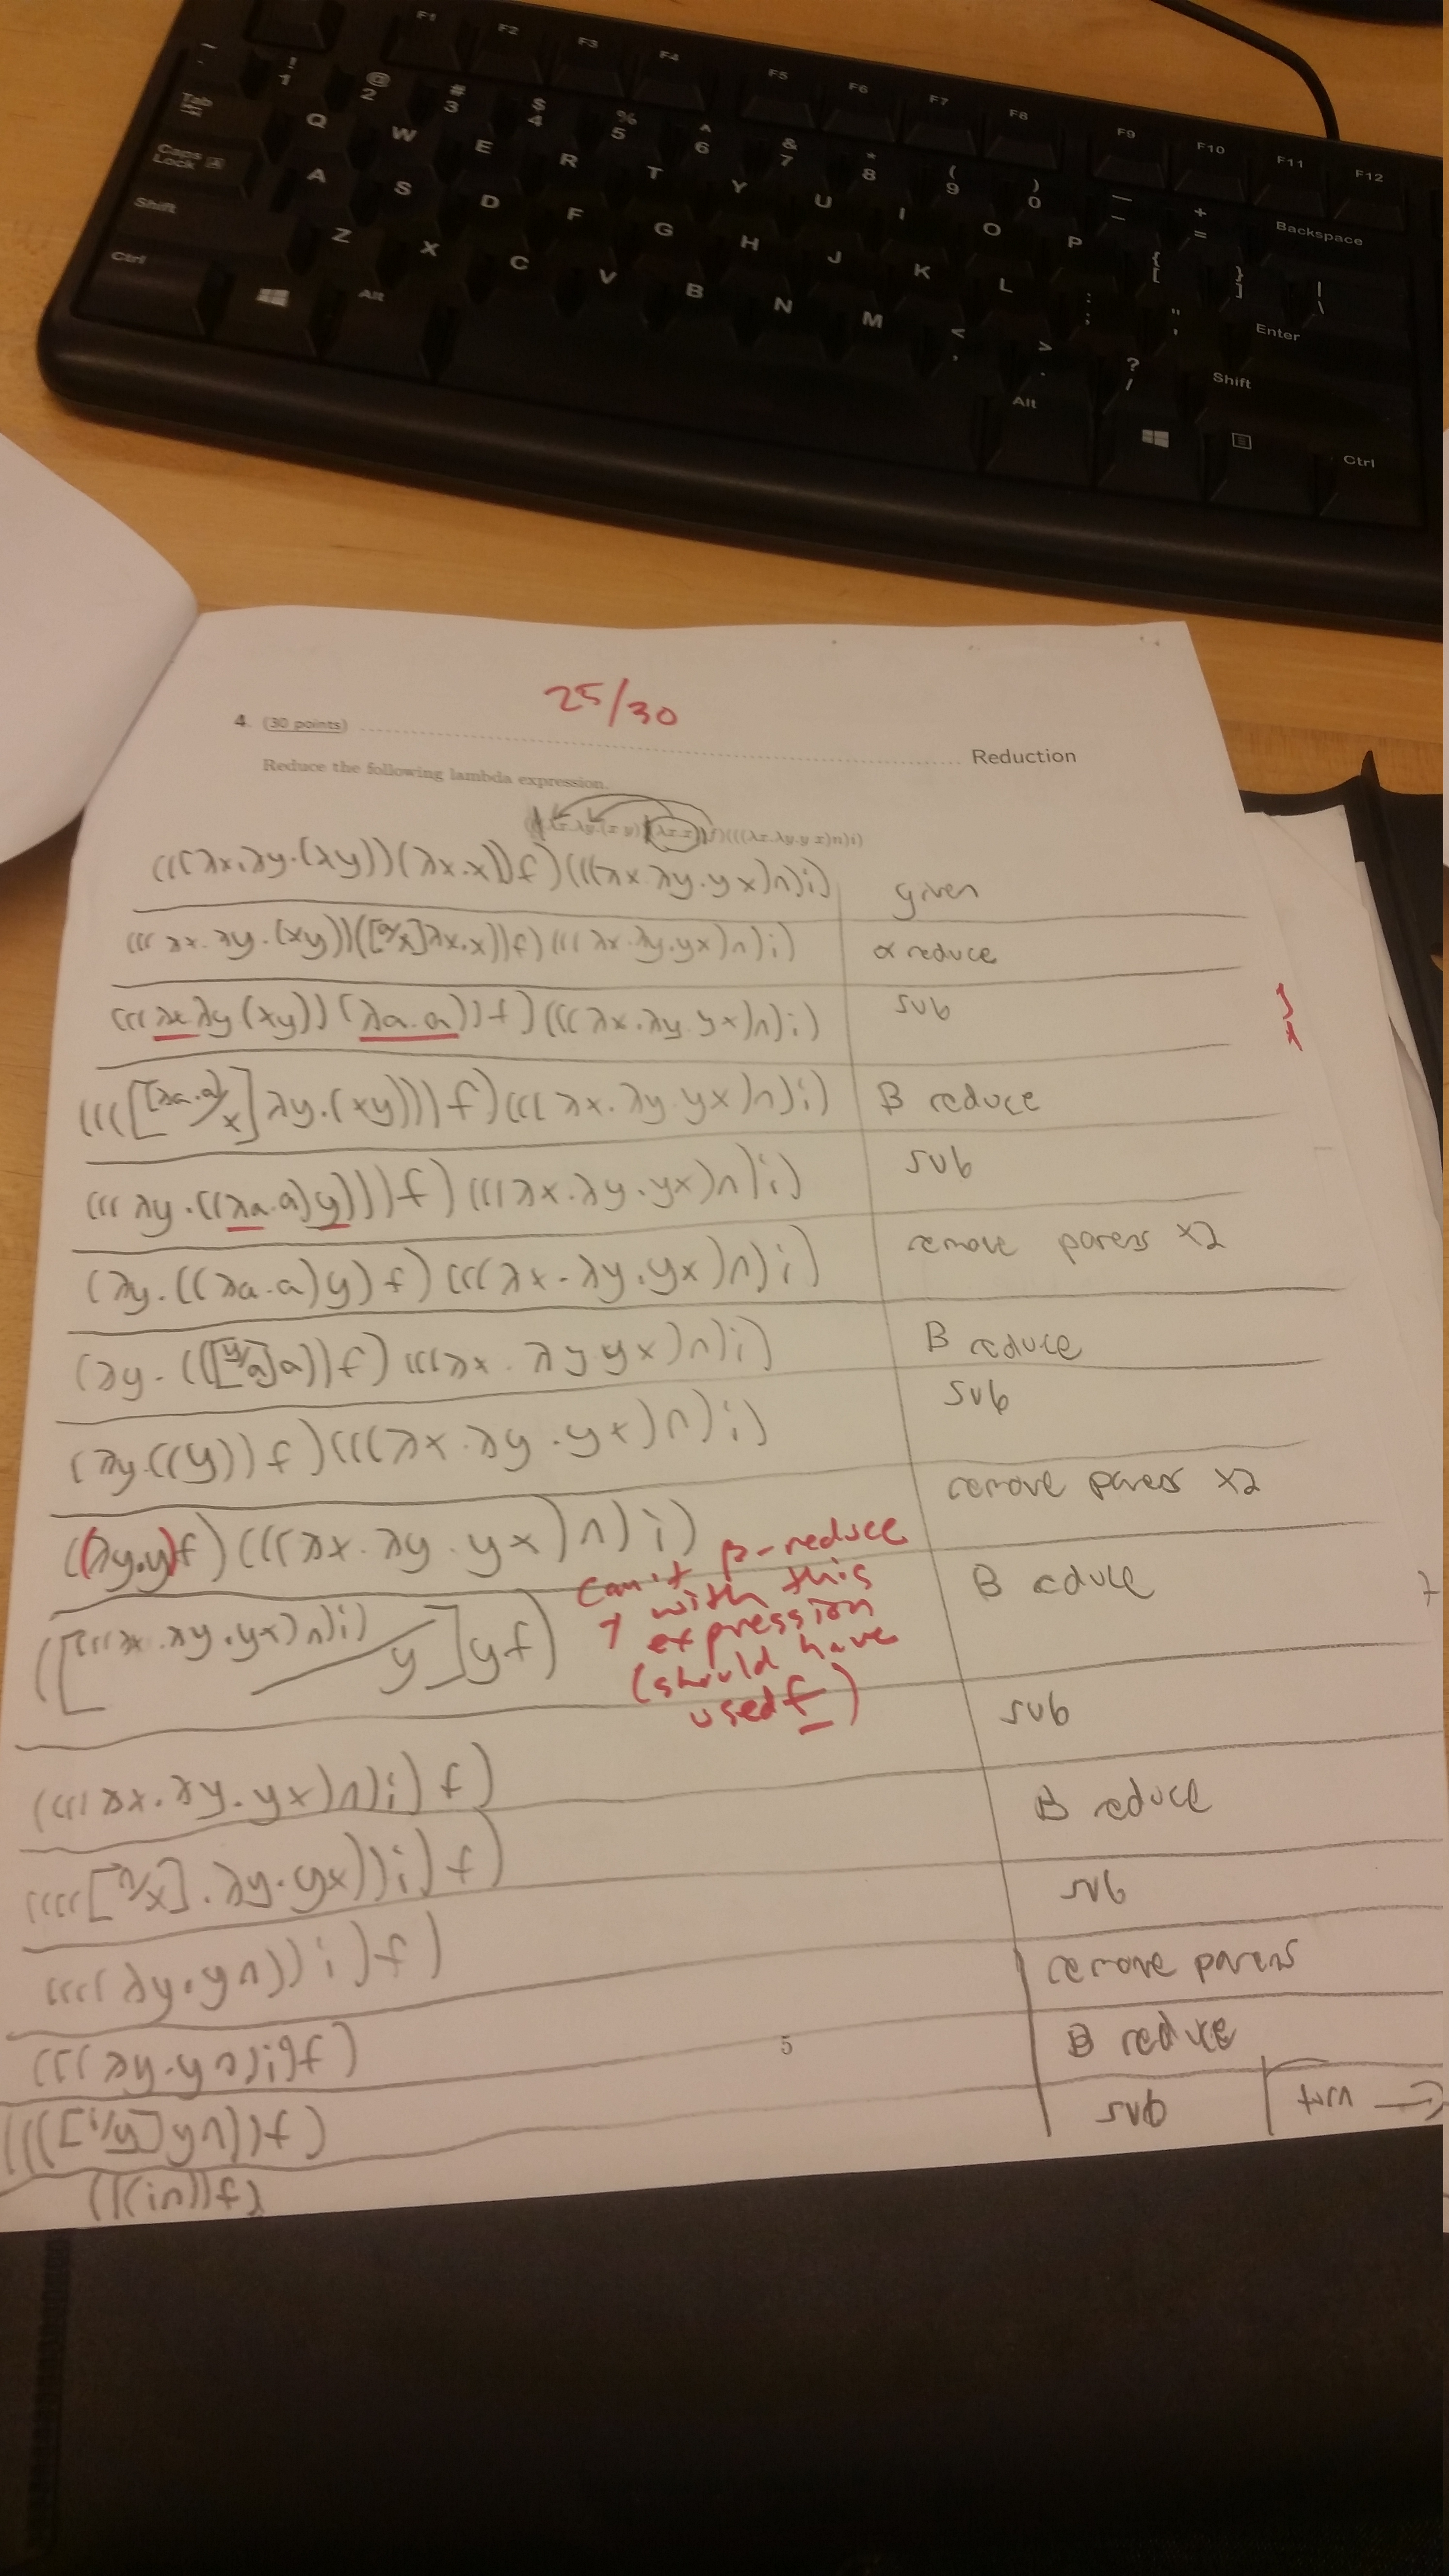 F1 F2 F3 F4 F5 F6 F7 F8 F9 F10 F11 F12
~ ! 1 @ 2 # 3 $ 4 % 5 ^ 6 & 7 * 8 ( 9 ) 0 — – + = Backspace
Tab Q W E R T Y U I O P { [ } ] | \
Caps Lock A S D F G H J K L : ; " ' Enter
Shift Z X C V B N M < , > . ? / Shift
Ctrl Alt Alt Ctrl
25/30
4. (30 points) Reduction
Reduce the following lambda expression.
(((λx.λy.(x y))(λx.x))f)(((λx.λy.y x)n)i)
(((λx.λy.(λy))(λx.x))f)(((λx.λy.yx)n)i) given
(((λx.λy.(xy))([a/x]λx.x))f)(((λx.λy.yx)n)i) α reduce
(((λx.λy(xy))(λa.a))f)(((λx.λy.yx)n)i) sub
((([(λa.a)/x]λy.(xy)))f)(((λx.λy.yx)n)i) B reduce
(((λy.((λa.a)y)))f)(((λx.λy.yx)n)i) sub
(λy.((λa.a)y)f)(((λx.λy.yx)n)i) remove parens x2
(λy.(([y/a]a))f)(((λx.λy.yx)n)i) B reduce
(λy.((y))f)(((λx.λy.yx)n)i) sub
((λy.y)f)(((λx.λy.yx)n)i) remove parens x2
([(((λx.λy.yx)n)i)/y]yf) B educe
can't β-reduce
with this
expression
(should have
used f)
((((λx.λy.yx)n)i)f) sub
(((([n/x].λy.yx))i)f) B reduce
((((λy.yn))i)f) sub
(((λy.yn)i)f) remove parens
((([i/y]yn))f) B reduce
(((in))f) sub
turn
5